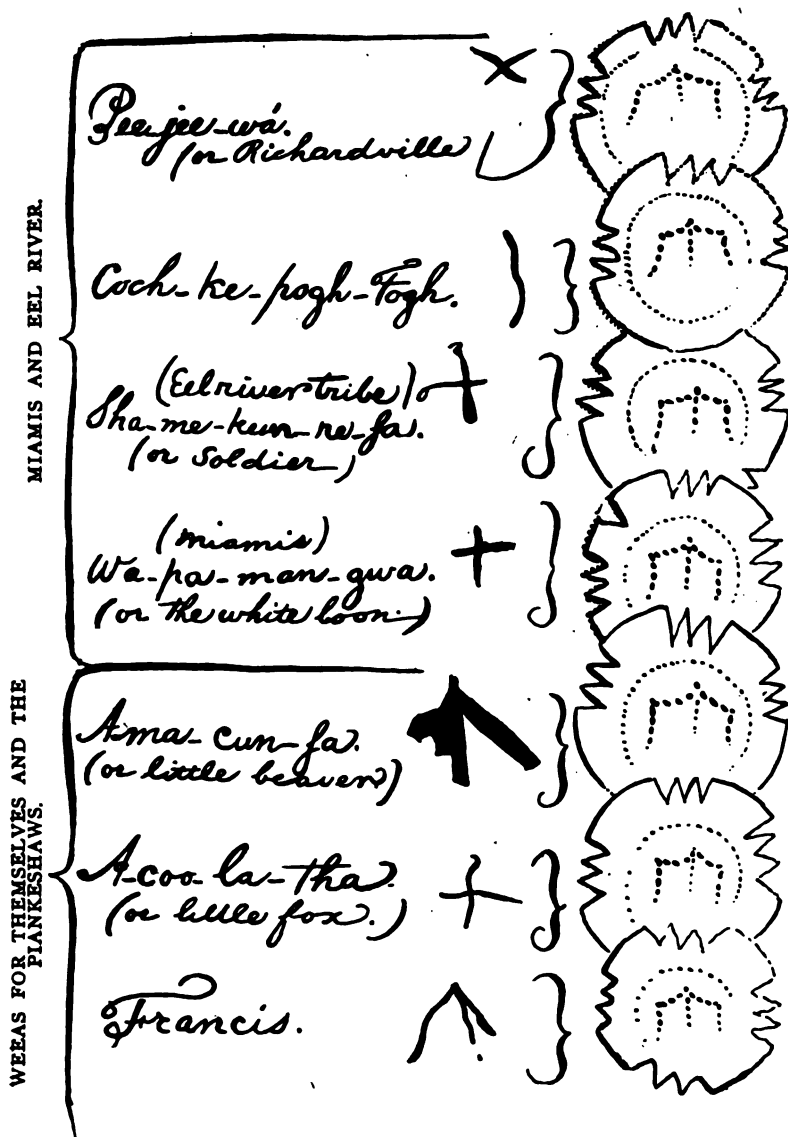 MIAMIS AND EEL RIVER.
Pee-jee-wá.
(or Richardville
Coch-ke-pogh-Togh.
(Eel river tribe)
Sha-me-kun-ne-sa.
(or Soldier)
(miamis)
Wa-pa-man-gwa.
(or the white loon.)
WEEAS FOR THEMSELVES AND THE
PIANKESHAWS.
A-ma-cun-sa.
(or little beaver)
A-coo-la-tha.
(or little fox.)
Francis.